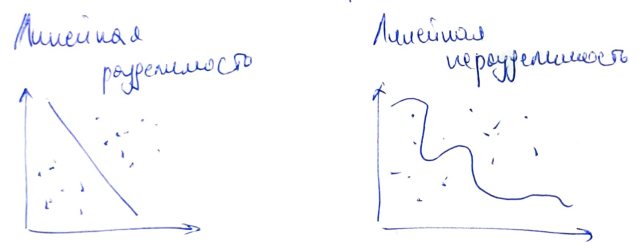 Линейная
разделимость
Линейная
неразделимость